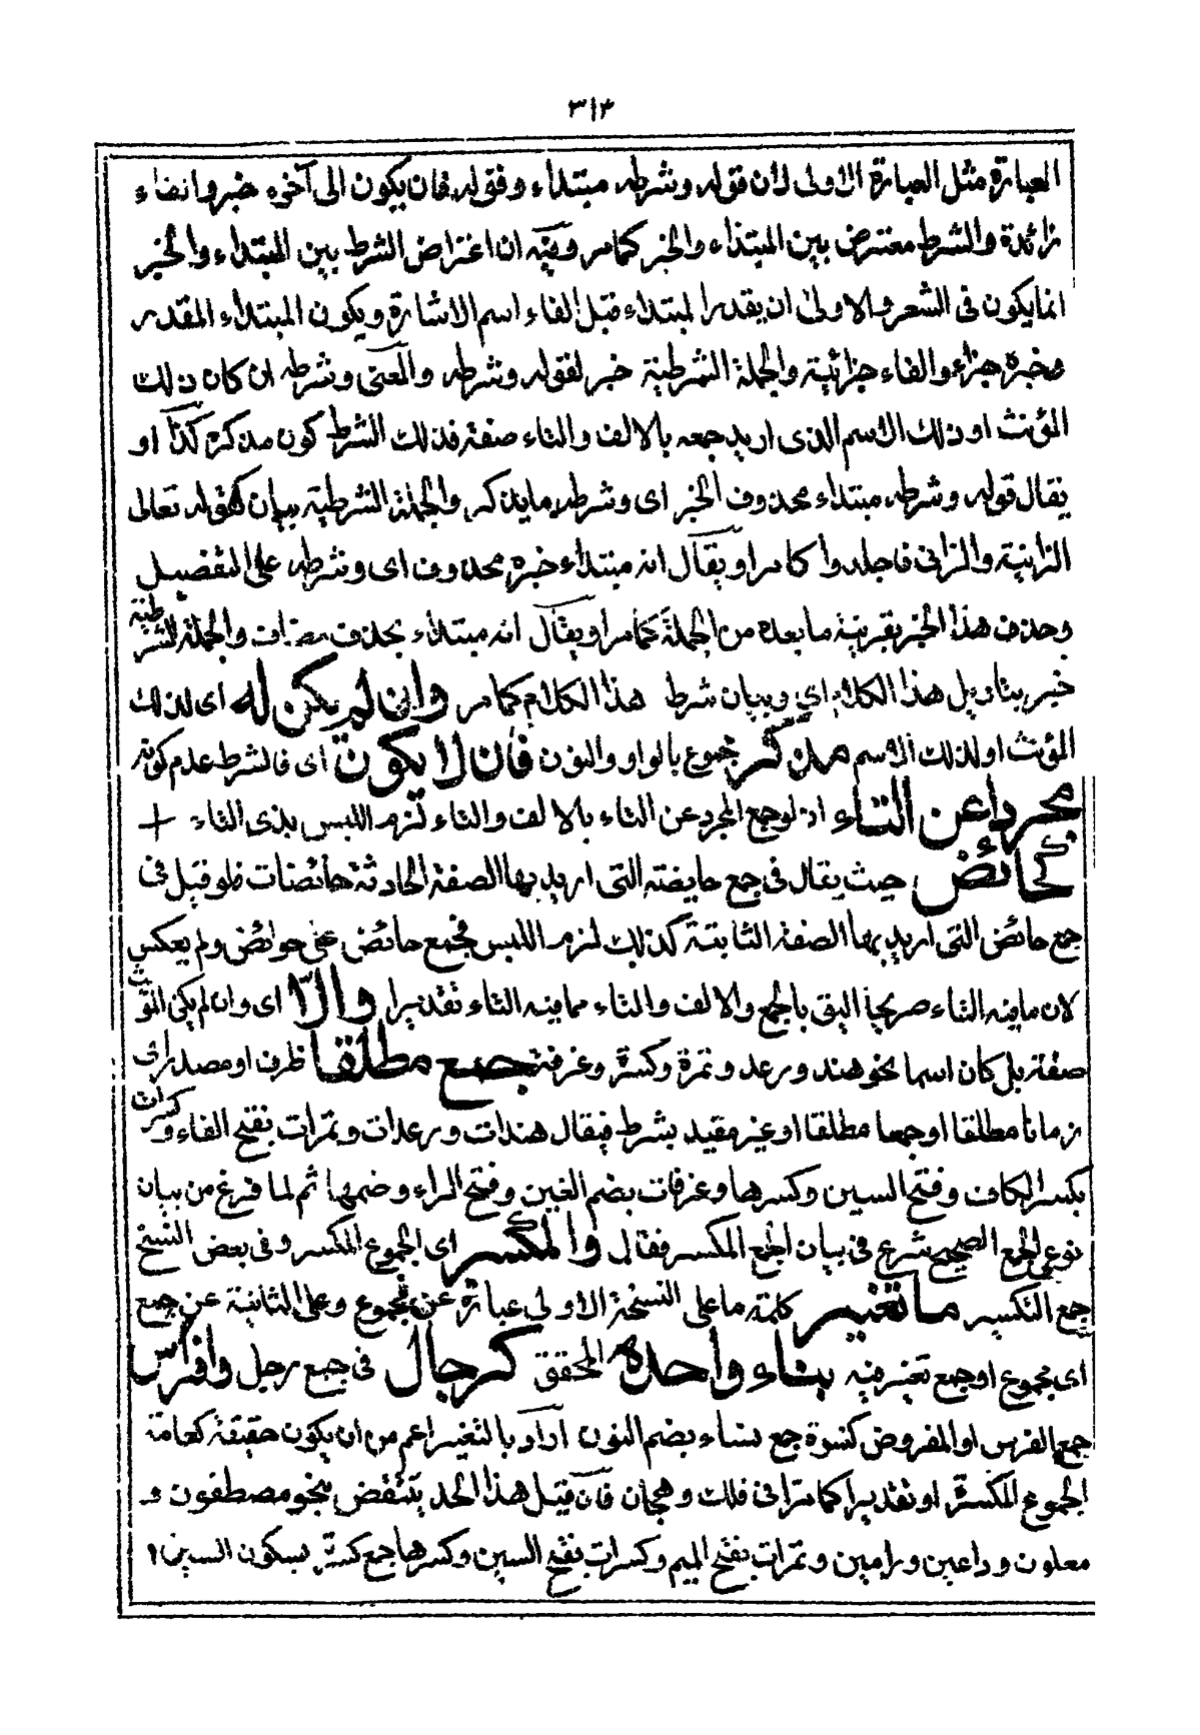 ٣١٤
العبارة مثل العبارة الاولى لان قوله وشرطه مبتداء وقوله فان يكون الى آخره خبر وانفاء
زائدة والشرط معترض بين المبتداء والخبر كما مر وفيه ان اعتراض الشرط بين المبتداء والخبر
انما يكون فى الشعر والاولى ان يقدر المبتداء قبل الفاء اسم الاشارة ويكون المبتداء المقدر
وخبره جزاء والفاء جزائية والجملة الشرطية خبر لقوله وشرطه والمعنى وشرطه ان كان ذلك
المؤنث او ذلك الاسم الذى اريد جمعه بالالف والتاء صفة فذلك الشرط كون مذكره كذا او
يقال قوله وشرطه مبتداء محذوف الخبر اى وشرطه ما يذكر والجملة الشرطية بيان كقوله تعالى
الزانية والزانى فاجلدوا كما مر او يقال انه مبتداء خبره محذوف اى وشرطه على التفصيل
وحذف هذا الخبر بقرينة ما بعده من الجملة كما مر او يقال انه مبتداء بحذف مضاف والجملة الشرطية
خبر بتاويل هذا الكلام اي وبيان شرط هذا الكلام كما مر وان لم يكن له اى لذلك
المؤنث او لذلك الاسم مذكر جموع بالواو والنون فان لا يكون اى فالشرط عدم كونه
مجردا عن التاء اذ لو جمع المجرد عن التاء بالالف والتاء لزم اللبس بذى التاء
كحائض حيث يقال فى جمع حايضته التى اريد بها الصفة الحادثة حائضات فلو قيل فى
جمع حائض التى اريد بها الصفة الثابتة كذلك لزم اللبس فجمع حائض على حوائض ولم يعكس
لان ما فيه التاء صريحا اليق بالجمع والالف والتاء مما فيه التاء تقديرا والا اى وان لم يكن المؤنث
صفة بل كان اسما نحو هند ورعد وتمرة وكسرة وغرفة جمع مطلقا ظرف او مصدر اى
زمانا مطلقا او جمعا مطلقا او غير مقيد بشرط فيقال هندات ورعدات وتمرات بفتح الفاء وكسرات
بكسر الكاف وفتح السين وكسرها وغرفات بضم الغين وفتح الراء وضمها ثم لما فرغ من بيان
نوعى الجمع الصحيح شرع فى بيان الجمع المكسر فقال والمكسر اى الجموع المكسر وفى بعض النسخ
جمع التكسير ما تغير كلمة ما على النسخة الاولى عبارة عن مجموع وعلى الثانية عن جمع
اى مجموع او جمع تغير فيه بناء واحده المحقق كرجال فى جمع رجل وافراس
جمع الفرس او المفروض كنسوة جمع نساء بضم النون اراد بالتغير اعم من ان يكون حقيقة كعامة
الجموع المكسرة او تقديرا كما مر فى فلك وهجان فان قيل هذا الحد ينتقض بنحو مصطفون و
معلون وداعين ورامين وتمرات بفتح الميم وكسرات بفتح السين وكسرها جمع كسرة بسكون السين